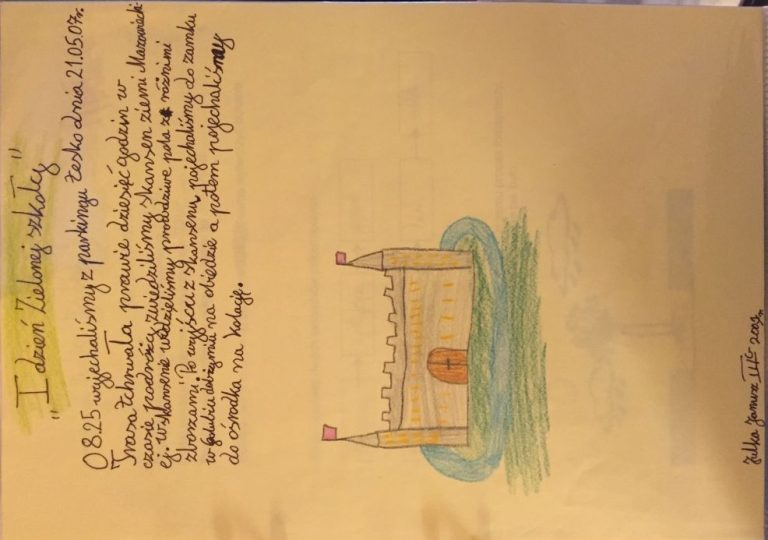 "I dzień Zielonej szkoły"
O 8.25 wyjechaliśmy z parkingu Tesko dnia 21.05.07r.
Trasa Tchrwała prawie dziesięć godzin w
czasie podróży zwiedziliśmy skansen ziemi Mazowiecki
ej. w skansenie widzieliśmy prawdziwe pola z różnimi
zborzami. Po wyjściu z skansenu, pojechaliśmy do zamku
w Golubiu dobrzyniu na obiedzie a potem pojechaliśmy
do ośrodka na kolację.
Julka Janusz